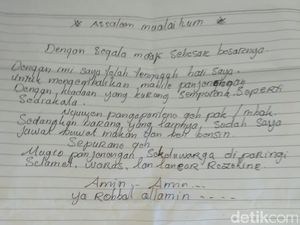 * Assalam mualaikum *
Dengan segala maaf sebesar besarnya.
Dengan ini saya telah terenggah hati saya.
untuk mengembalikan mobile panjenengan
Dengan, keadaan yang kurang semporna seperti
sediakala.
Nyuwun pangaponteno goh pak / mbak.
Sedangkan barang yang lainnya, sudah saya
jawal buwat makan dan beli bensin.
Sepurane goh
Mugio panjenongan, sekeluwarga di paringi
selamet, waras, lan lancar Rezekine.
Amin, - Amin ...
ya Robbal allamin ----
detikcom